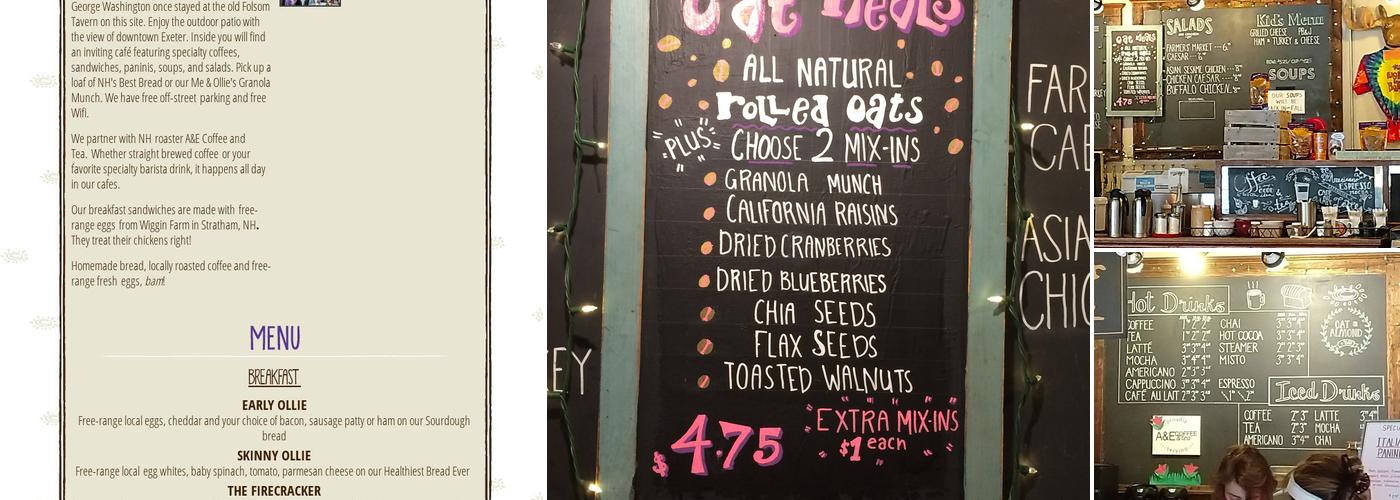 George Washington once stayed at the old Folsom
Tavern on this site. Enjoy the outdoor patio with
the view of downtown Exeter. Inside you will find
an inviting café featuring specialty coffees,
sandwiches, paninis, soups, and salads. Pick up a
loaf of NH's Best Bread or our Me & Ollie's Granola
Munch. We have free off-street parking and free
Wifi.
We partner with NH roaster A&E Coffee and
Tea. Whether straight brewed coffee or your
favorite specialty barista drink, it happens all day
in our cafes.
Our breakfast sandwiches are made with free-
range eggs from Wiggin Farm in Stratham, NH.
They treat their chickens right!
Homemade bread, locally roasted coffee and free-
range fresh eggs, bam!
MENU
BREAKFAST
EARLY OLLIE
Free-range local eggs, cheddar and your choice of bacon, sausage patty or ham on our Sourdough
bread
SKINNY OLLIE
Free-range local egg whites, baby spinach, tomato, parmesan cheese on our Healthiest Bread Ever
THE FIRECRACKER
Oat Meals
ALL NATURAL
rolled oats
PLUS CHOOSE 2 MIX-INS
GRANOLA MUNCH
CALIFORNIA RAISINS
DRIED CRANBERRIES
DRIED BLUEBERRIES
CHIA SEEDS
FLAX SEEDS
TOASTED WALNUTS
$4.75
EXTRA MIX-INS
$1 each
EY
FAR
CAE
ASIA
CHIC
Oat Meals
4.75
SALADS
FARMER'S MARKET
CAESAR
ASIAN SESAME CHICKEN
CHICKEN CAESAR
BUFFALO CHICKEN
Kid's Menu
GRILLED CHEESE PB&J
HAM & TURKEY & CHEESE
SOUPS
OUR SOUPS
WILL BE
BACK IN FALL
ESPRESSO
Hot Drinks
COFFEE
TEA
LATTÉ
MOCHA
AMERICANO
CAPPUCCINO
CAFÉ AU LAIT
CHAI
HOT COCOA
STEAMER
MISTO
ESPRESSO
OAT &
ALMOND
Iced Drinks
COFFEE
TEA
AMERICANO
LATTE
MOCHA
CHAI
A&E COFFEE
SPECI
ITALI
PANIN